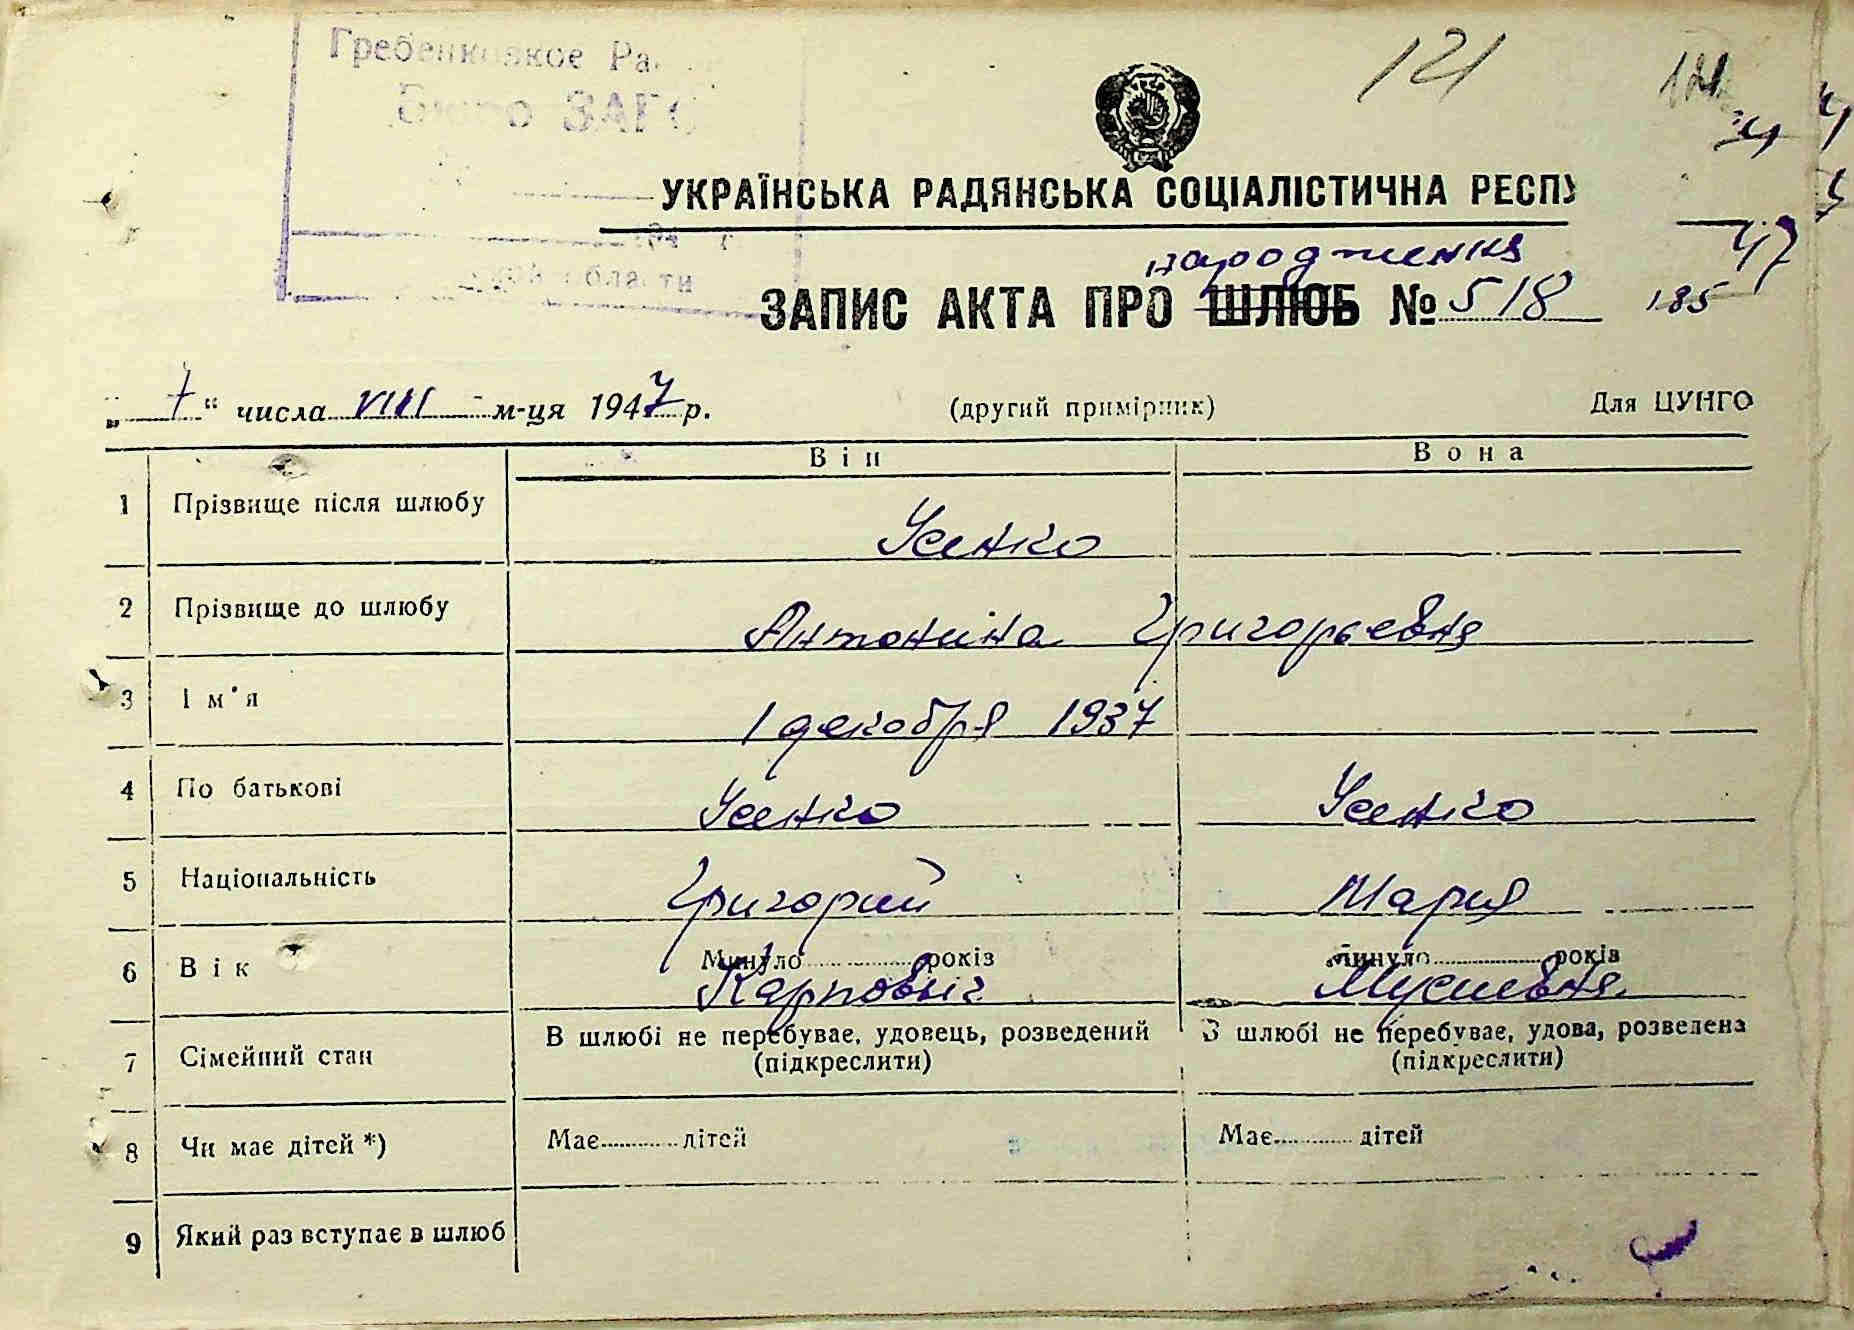 Гребенковское Ра
Бюро ЗАГС
121
121
УКРАЇНСЬКА РАДЯНСЬКА СОЦІАЛІСТИЧНА РЕСПУ
области
47
народження
ЗАПИС АКТА ПРО ШЛЮБ № 518 185
„ 7 “ числа VIII м-ця 1947 р. (другий примірник) Для ЦУНГО
Він Вона
1 Прізвище після шлюбу Усенко
2 Прізвище до шлюбу Антонина Григорьевна
3 Ім'я 1 декабря 1937
4 По батькові Усенко Усенко
5 Національність Григорий Мария
6 Вік Минуло років Минуло років
Карпович Мусиевна
7 Сімейний стан В шлюбі не перебуває, удовець, розведений В шлюбі не перебуває, удова, розведена
(підкреслити) (підкреслити)
8 Чи має дітей *) Має дітей Має дітей
9 Який раз вступає в шлюб